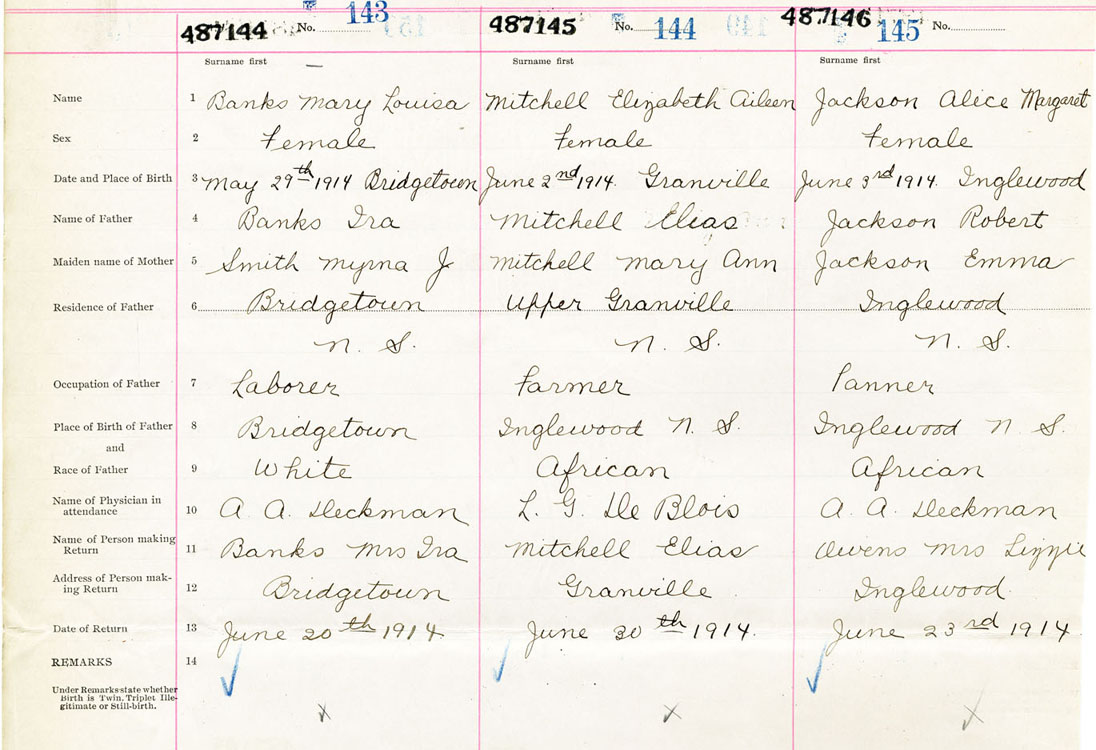 143
487144 No. 487145 No. 144 487146 145 No.
Surname first Surname first Surname first
Name 1 Banks Mary Louisa Mitchell Elizabeth Aileen Jackson Alice Margaret
Sex 2 Female Female Female
Date and Place of Birth 3 May 29th 1914 Bridgetown June 2nd 1914. Granville June 3rd 1914. Inglewood
Name of Father 4 Banks Ira Mitchell Elias Jackson Robert
Maiden name of Mother 5 Smith Myrna J Mitchell Mary Ann Jackson Emma
Residence of Father 6 Bridgetown Upper Granville Inglewood
N. S. N. S. N. S.
Occupation of Father 7 Laborer Farmer Tanner
Place of Birth of Father 8 Bridgetown Inglewood N. S. Inglewood N S.
and
Race of Father 9 White African African
Name of Physician in
attendance 10 A. A. Deckman L. G. De Blois A. A. Deckman
Name of Person making
Return 11 Banks Mrs Ira Mitchell Elias Owens Mrs Lizzie
Address of Person mak-
ing Return 12 Bridgetown Granville Inglewood.
Date of Return 13 June 20th 1914 June 30th 1914. June 23rd 1914
REMARKS 14
Under Remarks state whether
Birth is Twin, Triplet Ille-
gitimate or Still-birth.